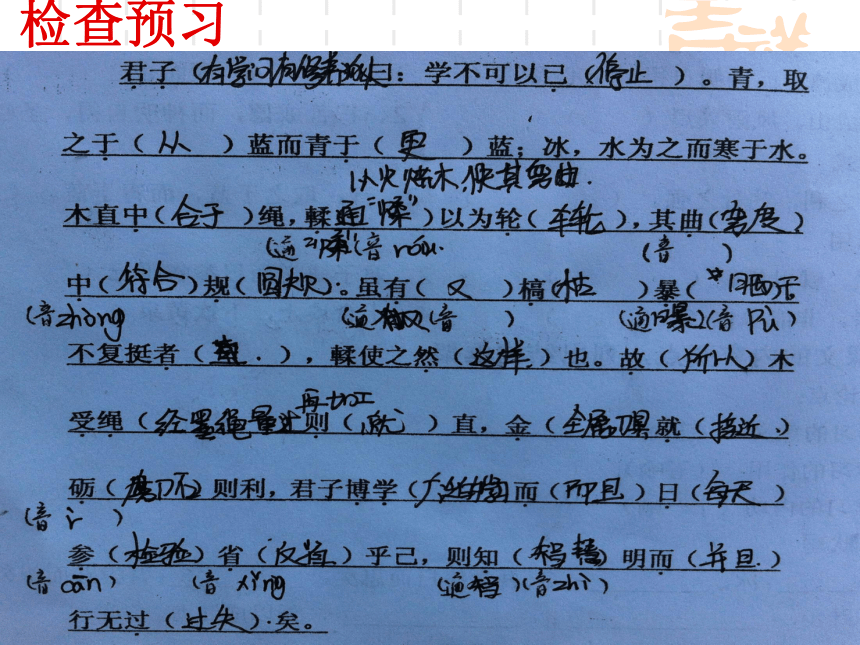 检查预习
君子（有学问有修养的人）曰：学不可以已（停止）。青，取
之于（从）蓝而青于（更）蓝；冰，水为之而寒于水。
以火烤木,使其弯曲.
木直中（合于）绳，輮（通"煣"）以为轮（车轮），其曲（弯度）
(通"煣"(音róu. (音 )
中（符合）规（圆规）。虽有（又）槁（枯）暴（晒干
(音zhòng (通 又(音 ) (通曝)(音pù)
不复挺者（直.），輮使之然（这样.）也。故（所以）木
再加工
受绳（经墨绳量过 则（就）直，金（金属刀具 就（接近.）
砺（磨刀石）则利，君子博学（广泛地学）而（而且）日（每天）
(音lì )
参（检验）省（反省）乎己，则知（ ）明而（并且.）
(音cān) (音xǐng (通 )(音zhì)
行无过（过失）.矣。